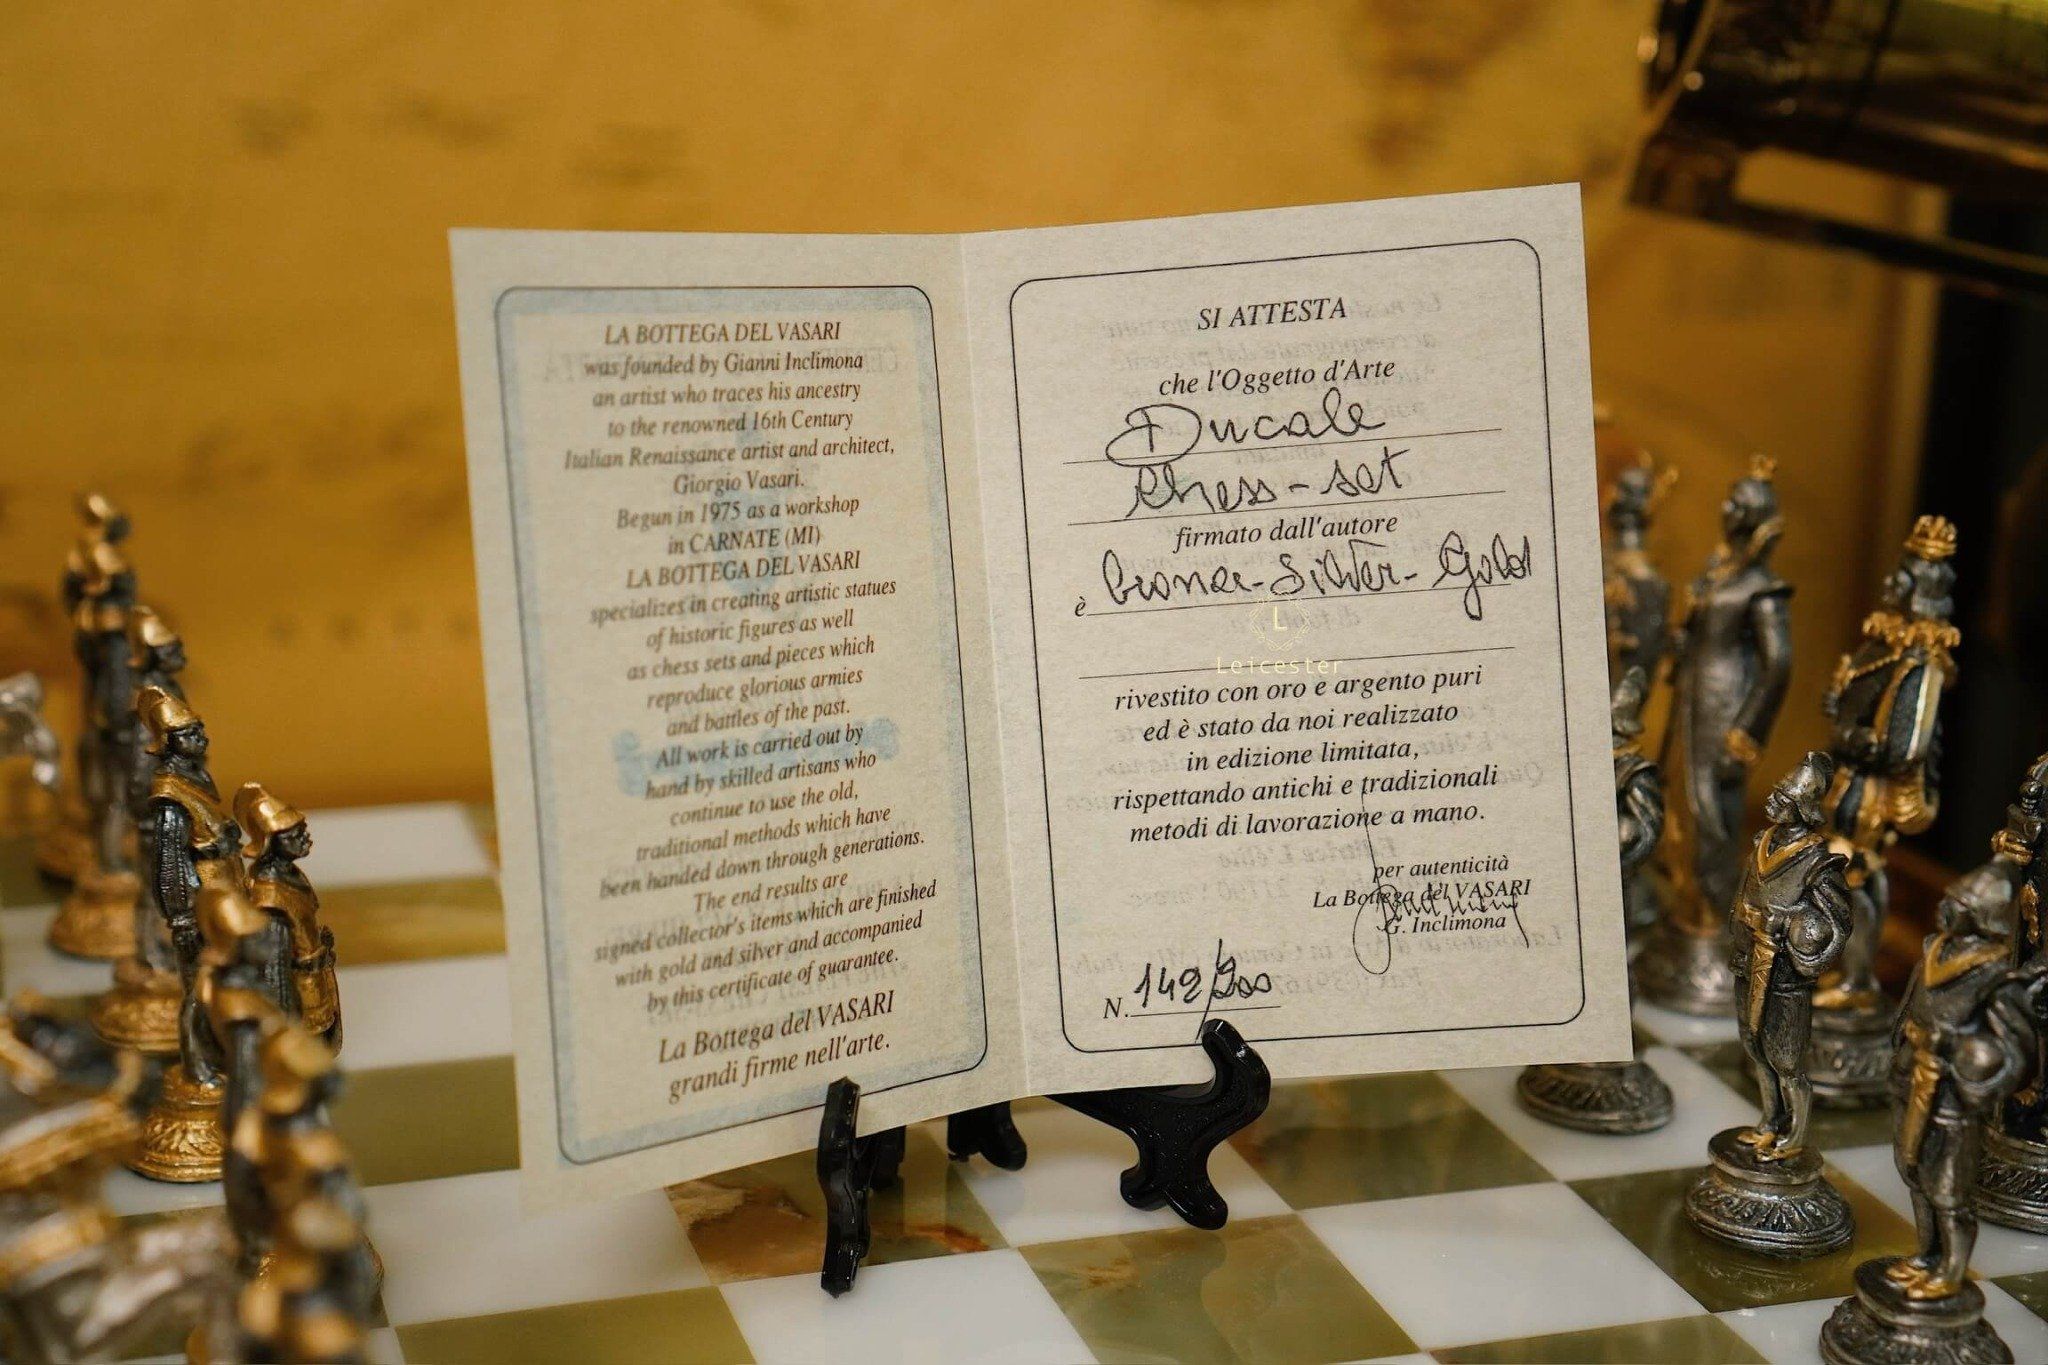 LA BOTTEGA DEL VASARI
was founded by Gianni Inclimona
an artist who traces his ancestry
to the renowned 16th Century
Italian Renaissance artist and architect,
Giorgio Vasari.
Begun in 1975 as a workshop
in CARNATE (MI)
LA BOTTEGA DEL VASARI
specializes in creating artistic statues
of historic figures as well
as chess sets and pieces which
reproduce glorious armies
and battles of the past.
All work is carried out by
hand by skilled artisans who
continue to use the old,
traditional methods which have
been handed down through generations.
The end results are
signed collector's items which are finished
with gold and silver and accompanied
by this certificate of guarantee.
La Bottega del VASARI
grandi firme nell'arte.
SI ATTESTA
che l'Oggetto d'Arte
Ducale
Chess-set
firmato dall'autore
è bronze-Silver-Gold
L
Leicester
rivestito con oro e argento puri
ed è stato da noi realizzato
in edizione limitata,
rispettando antichi e tradizionali
metodi di lavorazione a mano.
per autenticità
La Bottega del VASARI
G. Inclimona
N. 149/200